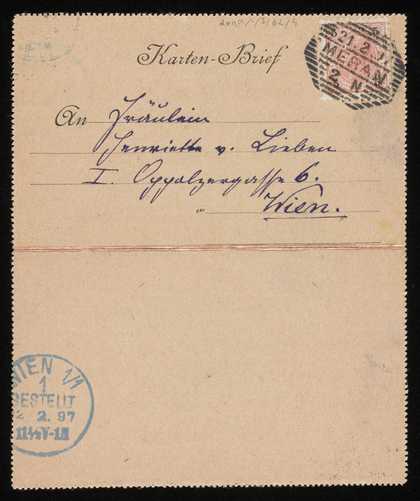 Karten-Brief
21.2.
MERAN
2 N
An Fräulein
Henriette v. Lieben
I. Oppolzergasse 6.
" Wien.
WIEN 1/1
1
BESTELLT
2. 97
11½V-1N